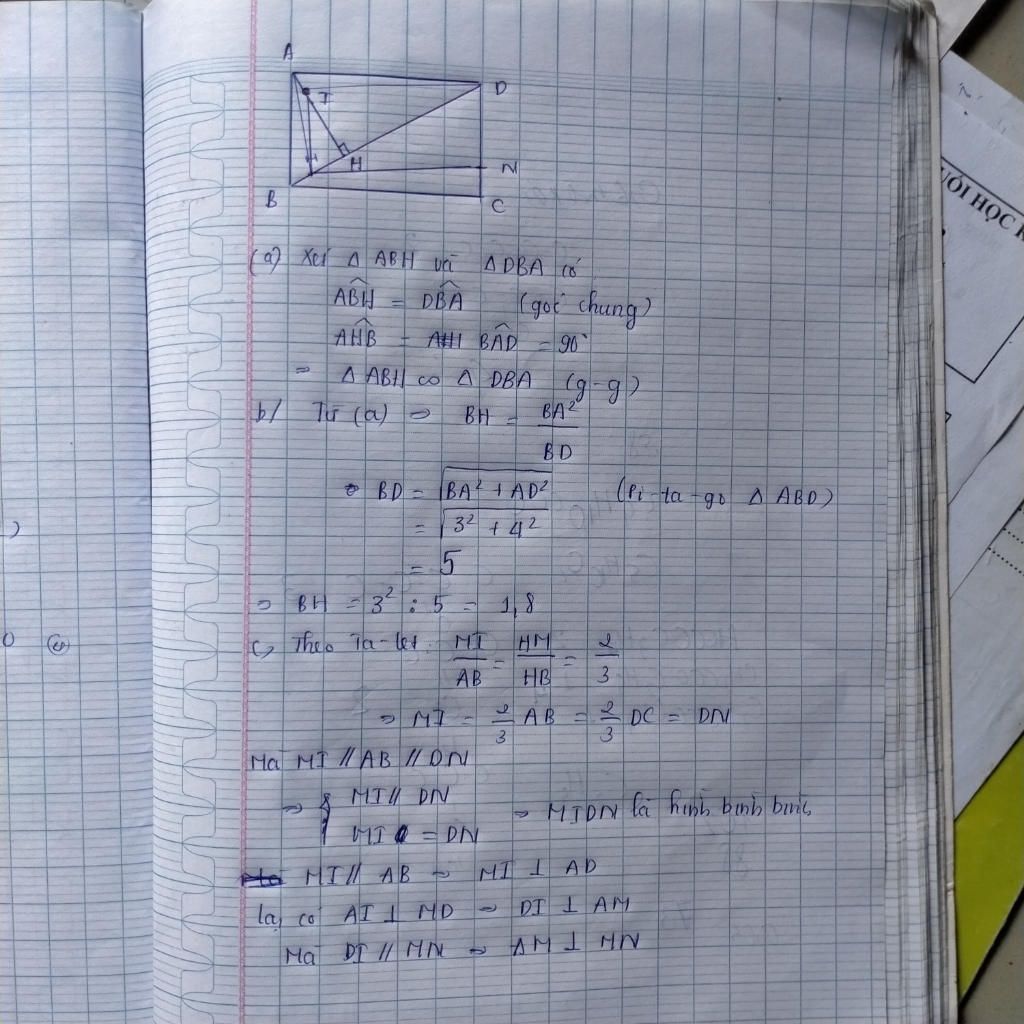 A
D
I
H
N
B
C
(a) Xét Δ ABH và Δ DBA có
ABH = DBA (góc chung)
AHB = BAD = 90°
⇒ Δ ABH ∽ Δ DBA (g-g)
b/ Từ (a) ⇒ BH = BA² / BD
BD = √BA² + AD² (Pi-ta-go Δ ABD)
= √3² + 4²
= 5
⇒ BH = 3² : 5 = 1,8
c, Theo Ta-let: MI / AB = HM / HB = 2 / 3
⇒ MI = 2/3 AB = 2/3 DC = DN
Mà MI // AB // DN
⇒ { MI // DN
MI = DN ⇒ MIDN là hình bình hành
MI // AB ⇒ MI ⊥ AD
lại có AI ⊥ MD ⇒ DI ⊥ AM
Mà DI // MN ⇒ AM ⊥ MN